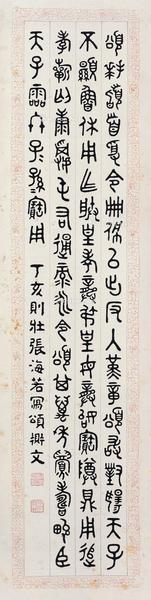 頌拜𩒨首受令冊佩以出反入堇章頌敢對揚天子
不顯魯休用乍朕皇考龏弔皇母龏姒寶尊鼎用追
孝祈匄康䨝屯右通彔永令頌其萬年眉壽畯臣
天子霝冬子孫寶用 丁亥則壯張海若寫頌文